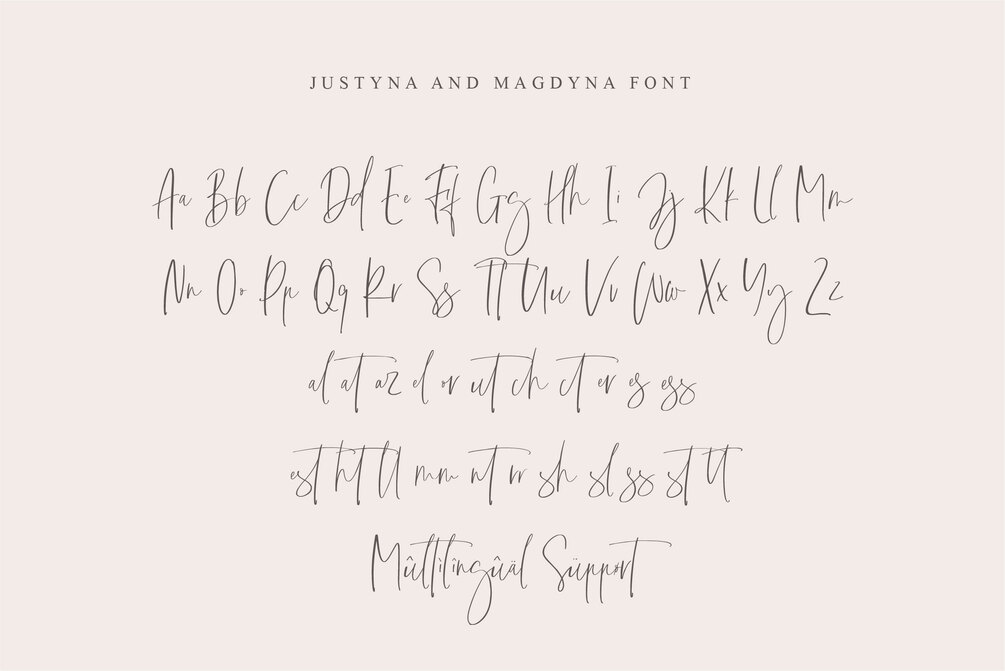 JUSTYNA AND MAGDYNA FONT
Aa Bb Cc Dd Ee Ff Gg Hh Ii Jj Kk Ll Mm
Nn Oo Pp Qq Rr Ss Tt Uu Vv Ww Xx Yy Zz
al at az el or ut ch ct er es ess
est ht tl mm nt rr sh sl ss st tt
Mûltìlîngûäl Süppört